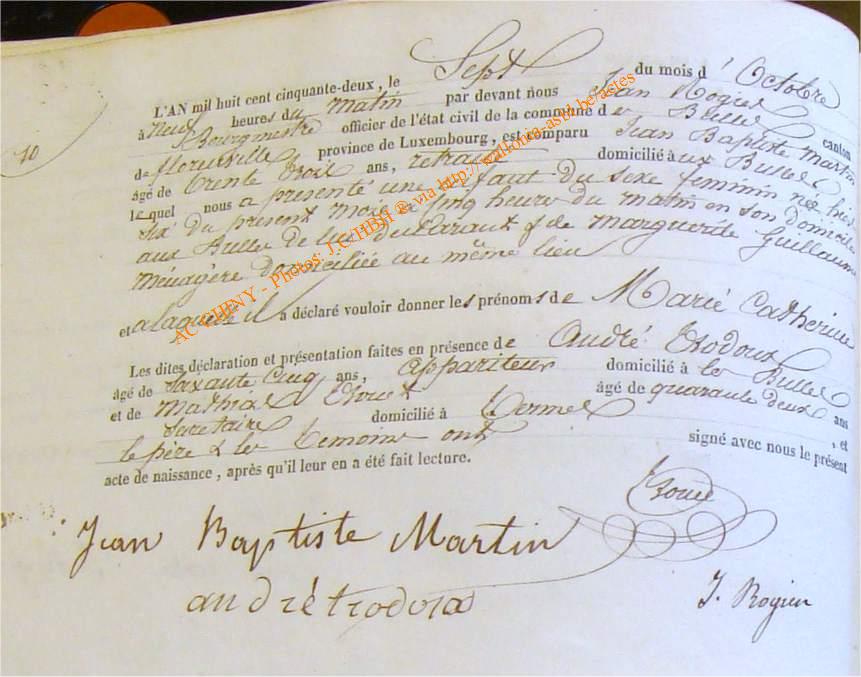 10
L'AN mil huit cent cinquante-deux, le Sept du mois d' Octobre
à neuf heures du matin par devant nous Jean Rogier
Bourgmestre officier de l'état civil de la commune des Bulles canton
de florenville province de Luxembourg, est comparu Jean Baptiste Martin
âgé de trente trois ans, domicilié aux Bulles
lequel nous a présenté une enfant du sexe feminin née hier
six du present mois a cinq heures du matin en son domicile
aux Bulles de lui declarant & de marguerite Guillaume
ménagère domiciliée au même lieu
et a laquelle il a déclaré vouloir donner les prénoms de Marie Catherine
Les dites déclaration et présentation faites en présence de André Trodoux
âgé de soixante Cinq ans, appariteur domicilié à les Bulles
et de Mathias âgé de quarante deux ans
Secretaire domicilié à Termes , et
le père & les temoins ont signé avec nous le présent
acte de naissance, après qu'il leur en a été fait lecture.
Jean Baptiste Martin
andré trodoux
J. Rogier
AC CHINY - Photos: J.C HBJI @ via http://wallonica-asbl.be/actes